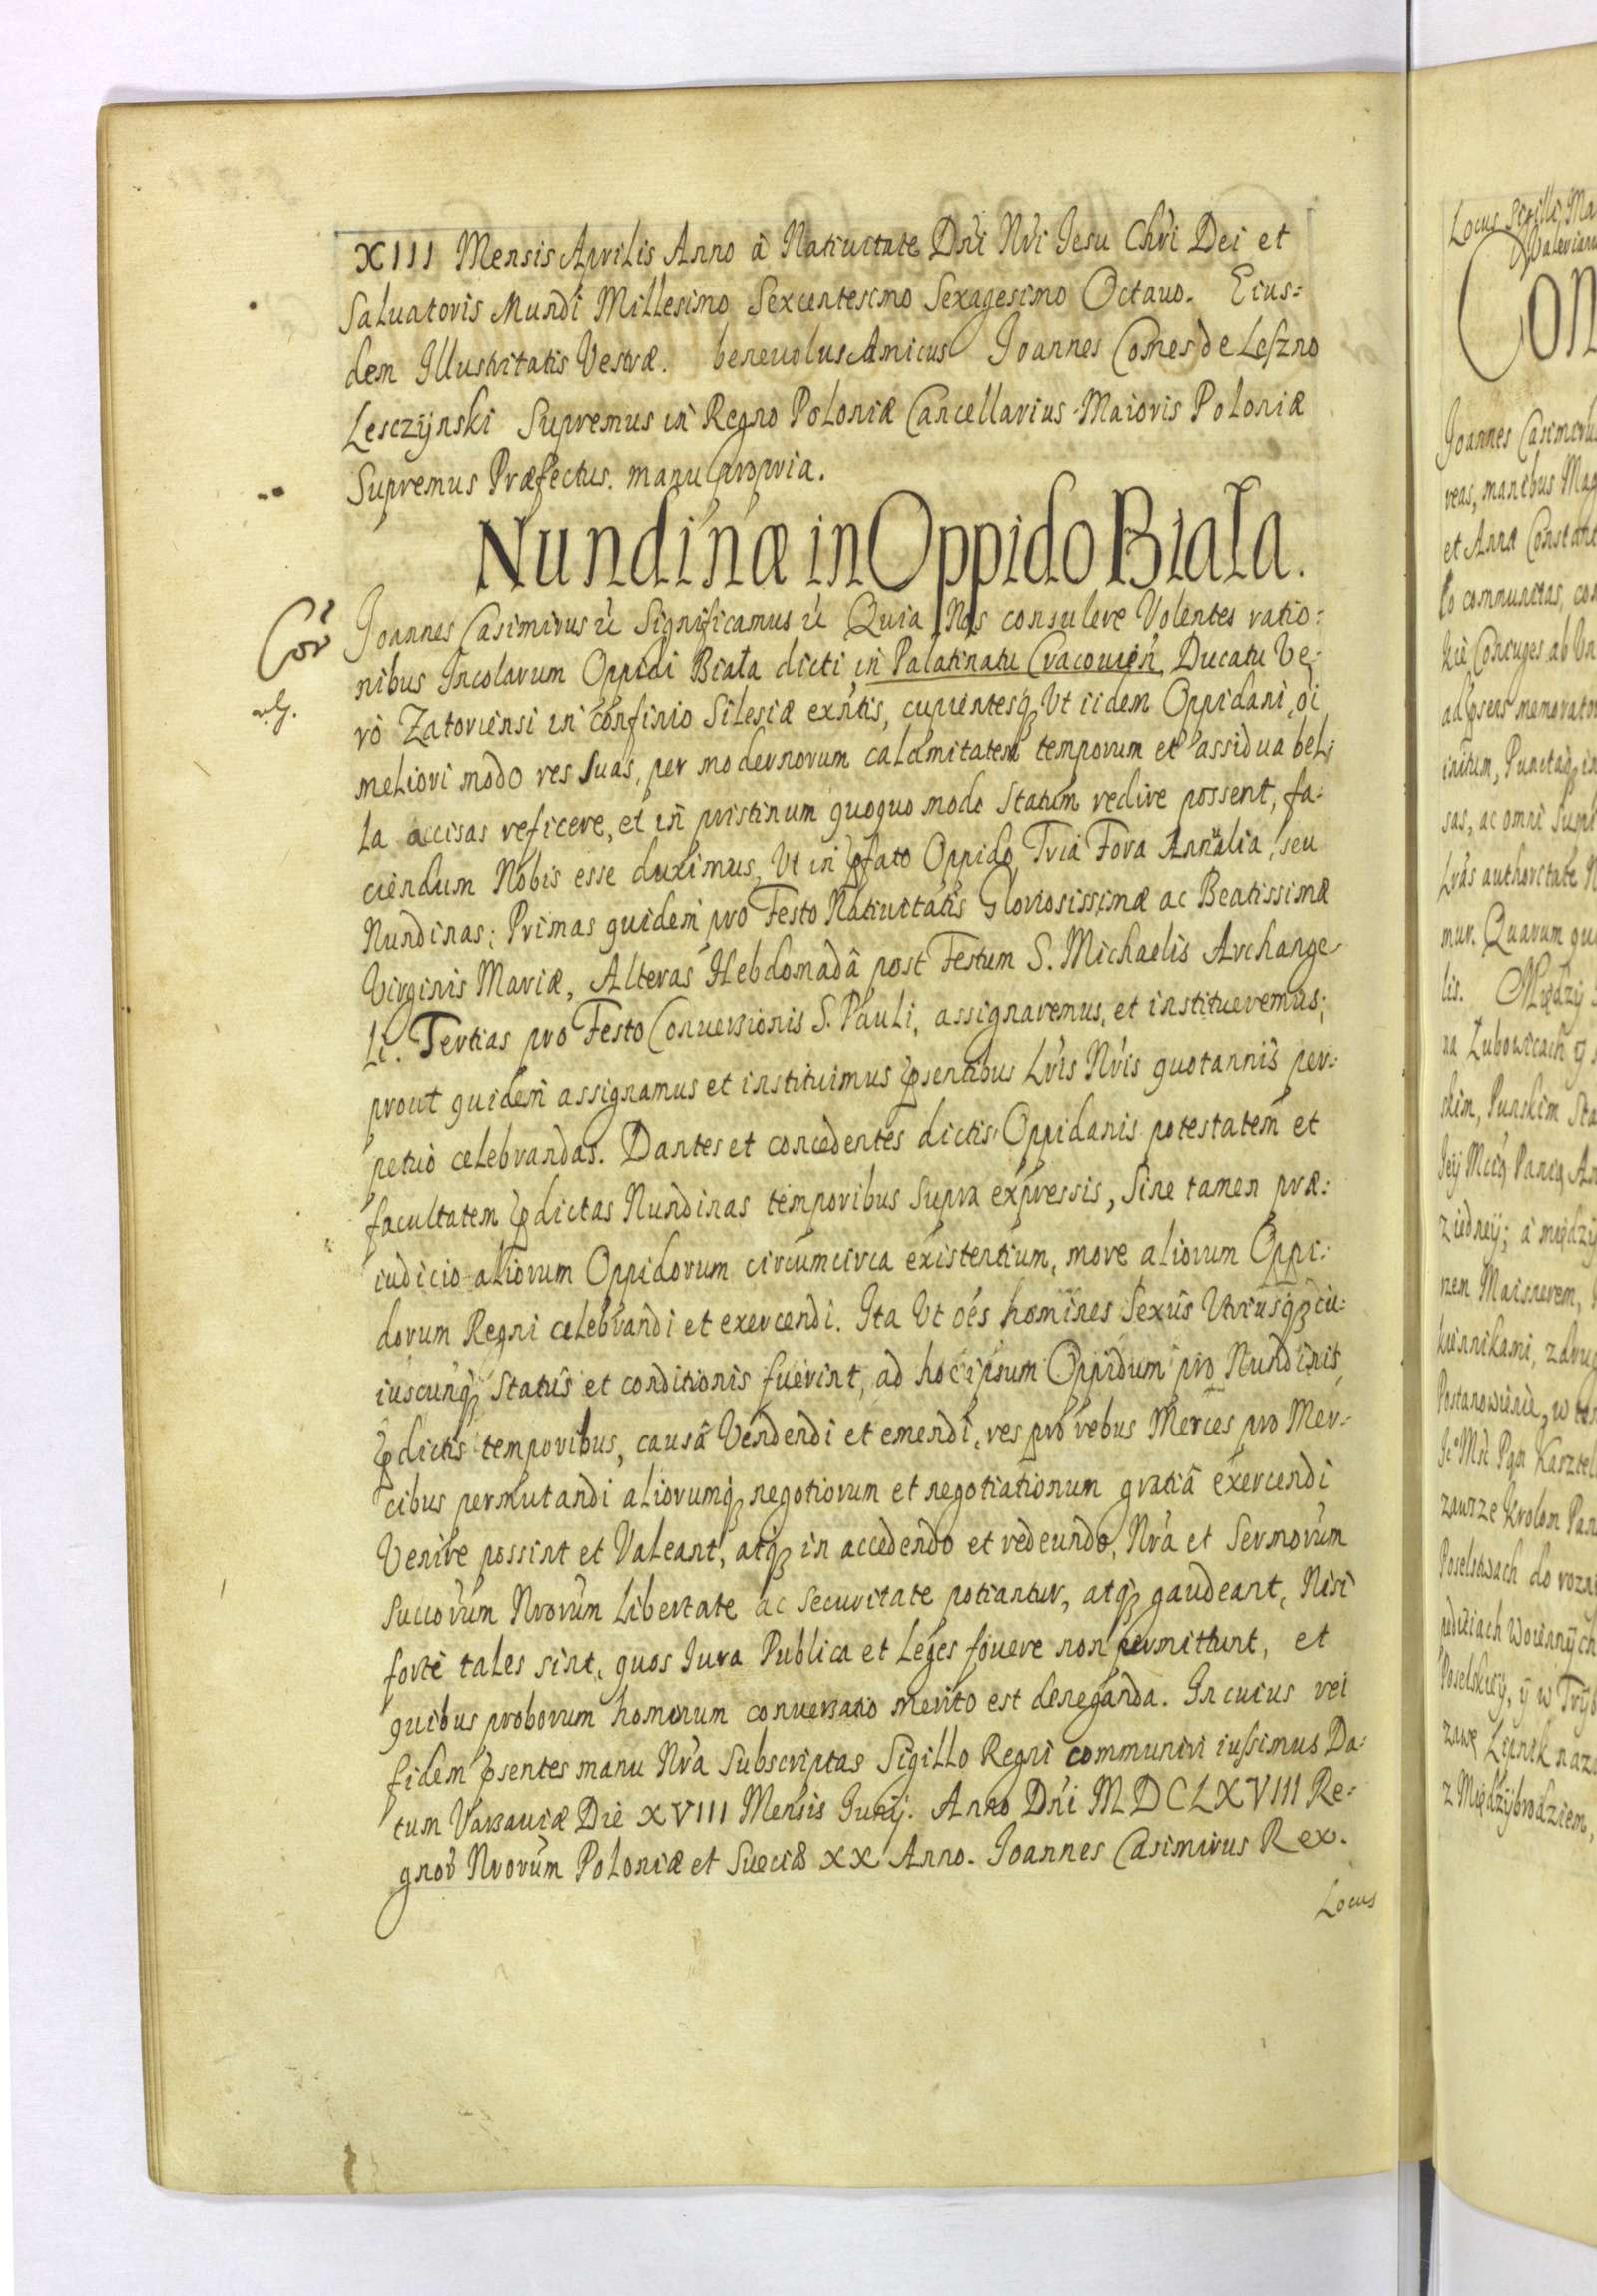 XIII Mensis Aprilis Anno â Natiuitate Dni Nri Jesu Chri Dei et
Saluatoris Mundi Millesimo Sexcentesimo Sexagesimo Octauo. Eius:
dem Illustritatis Vestræ. beneuolus Amicus Joannes Comes de Leszno
Lesczÿnski Supremus in Regno Poloniæ Cancellarius Maioris Poloniæ
Supremus Præfectus. manu propria.
Nundinæ in Oppido Biała.
Joannes Casimirus Significamus Quia Nos consulere Volentes ratio:
nibus Incolarum Oppidi Biała dicti, in Palatinatu Cracouien, Ducatu Ve:
rò Zatoriensi in confinio Silesiæ exntis, cupientesq Vt iidem Oppidani, oi
meliori modo res suas, per modernorum calamitatem temporum et assidua bel:
la accisas reficere, et in pristinum quoquo modo Statum redire possent, fa:
ciendum Nobis esse duximus, Vt in pfato Oppido Tria Fora Annalia, seu
Nundinas; Primas quidem pro Festo Natiuitatis Gloriosissimæ ac Beatissimæ
Virginis Mariæ, Alteras Hebdomadâ post Festum S. Michaelis Archange
li. Tertias pro Festo Conuersionis S. Pauli, assignaremus, et institueremus;
prout quidem assignamus et instituimus psentibus Lris Nris quotannis per:
petuò celebrandas. Dantes et concedentes dictis Oppidanis potestatem et
facultatem pdictas Nundinas temporibus supra expressis, Sine tamen præ:
iudicio aliorum Oppidorum circumcirca existentium, more aliorum Oppi:
dorum Regni celebrandi et exercendi. Ita Vt oés homines Sexûs Vtriusq cu:
iuscunq Statûs et conditionis fuerint, ad hoc ipsum Oppidum pro Nundinis
pdictis temporibus, causâ Vendendi et emendi, res pro rebus Merces pro Mer:
cibus permutandi aliorumq negotiorum et negotiationum gratiâ exercendi
Venire possint et Valeant, atq in accedendo et redeundo, Nrâ et Sermorum
Succorum Nrorum Libertate ac Securitate potiantur, atq gaudeant, Nisi
forte tales sint, quos Jura Publica et Leges fouere non permittunt, et
quibus proborum hominum conuersatio merito est deneganda. In cuius rei
fidem psentes manu Nra Subscriptas Sigillo Regni communiri iussimus Da:
tum Varsauiæ Die XVIII Mensis Junij. Anno Dni MDCLXVIII Re:
gnor Nrorum Poloniæ et Sueciæ XX Anno. Joannes Casimirus Rex.
Locus
Cor
Locus Sigilli, Ma
Valerian
Con
Joannes Casimirus
reas, manibus Mag
et Anna Constant
adpsens memorator
initum, Punctaq in
sas, ac omni
Lras authoritate N
mur. Quarum qui
lis. Między
na Łubowicach ÿ
skim, Punskim Sta
nem Maisnerem,
kiennikami, z drug
Postanowienie, w ten
zawsze Krolom Pan
Poselstwach do rozn
peditiach Woiennych
Poselskiey, ÿ w Tryb
zawe Lipnik naz
z Międzybrodziem,